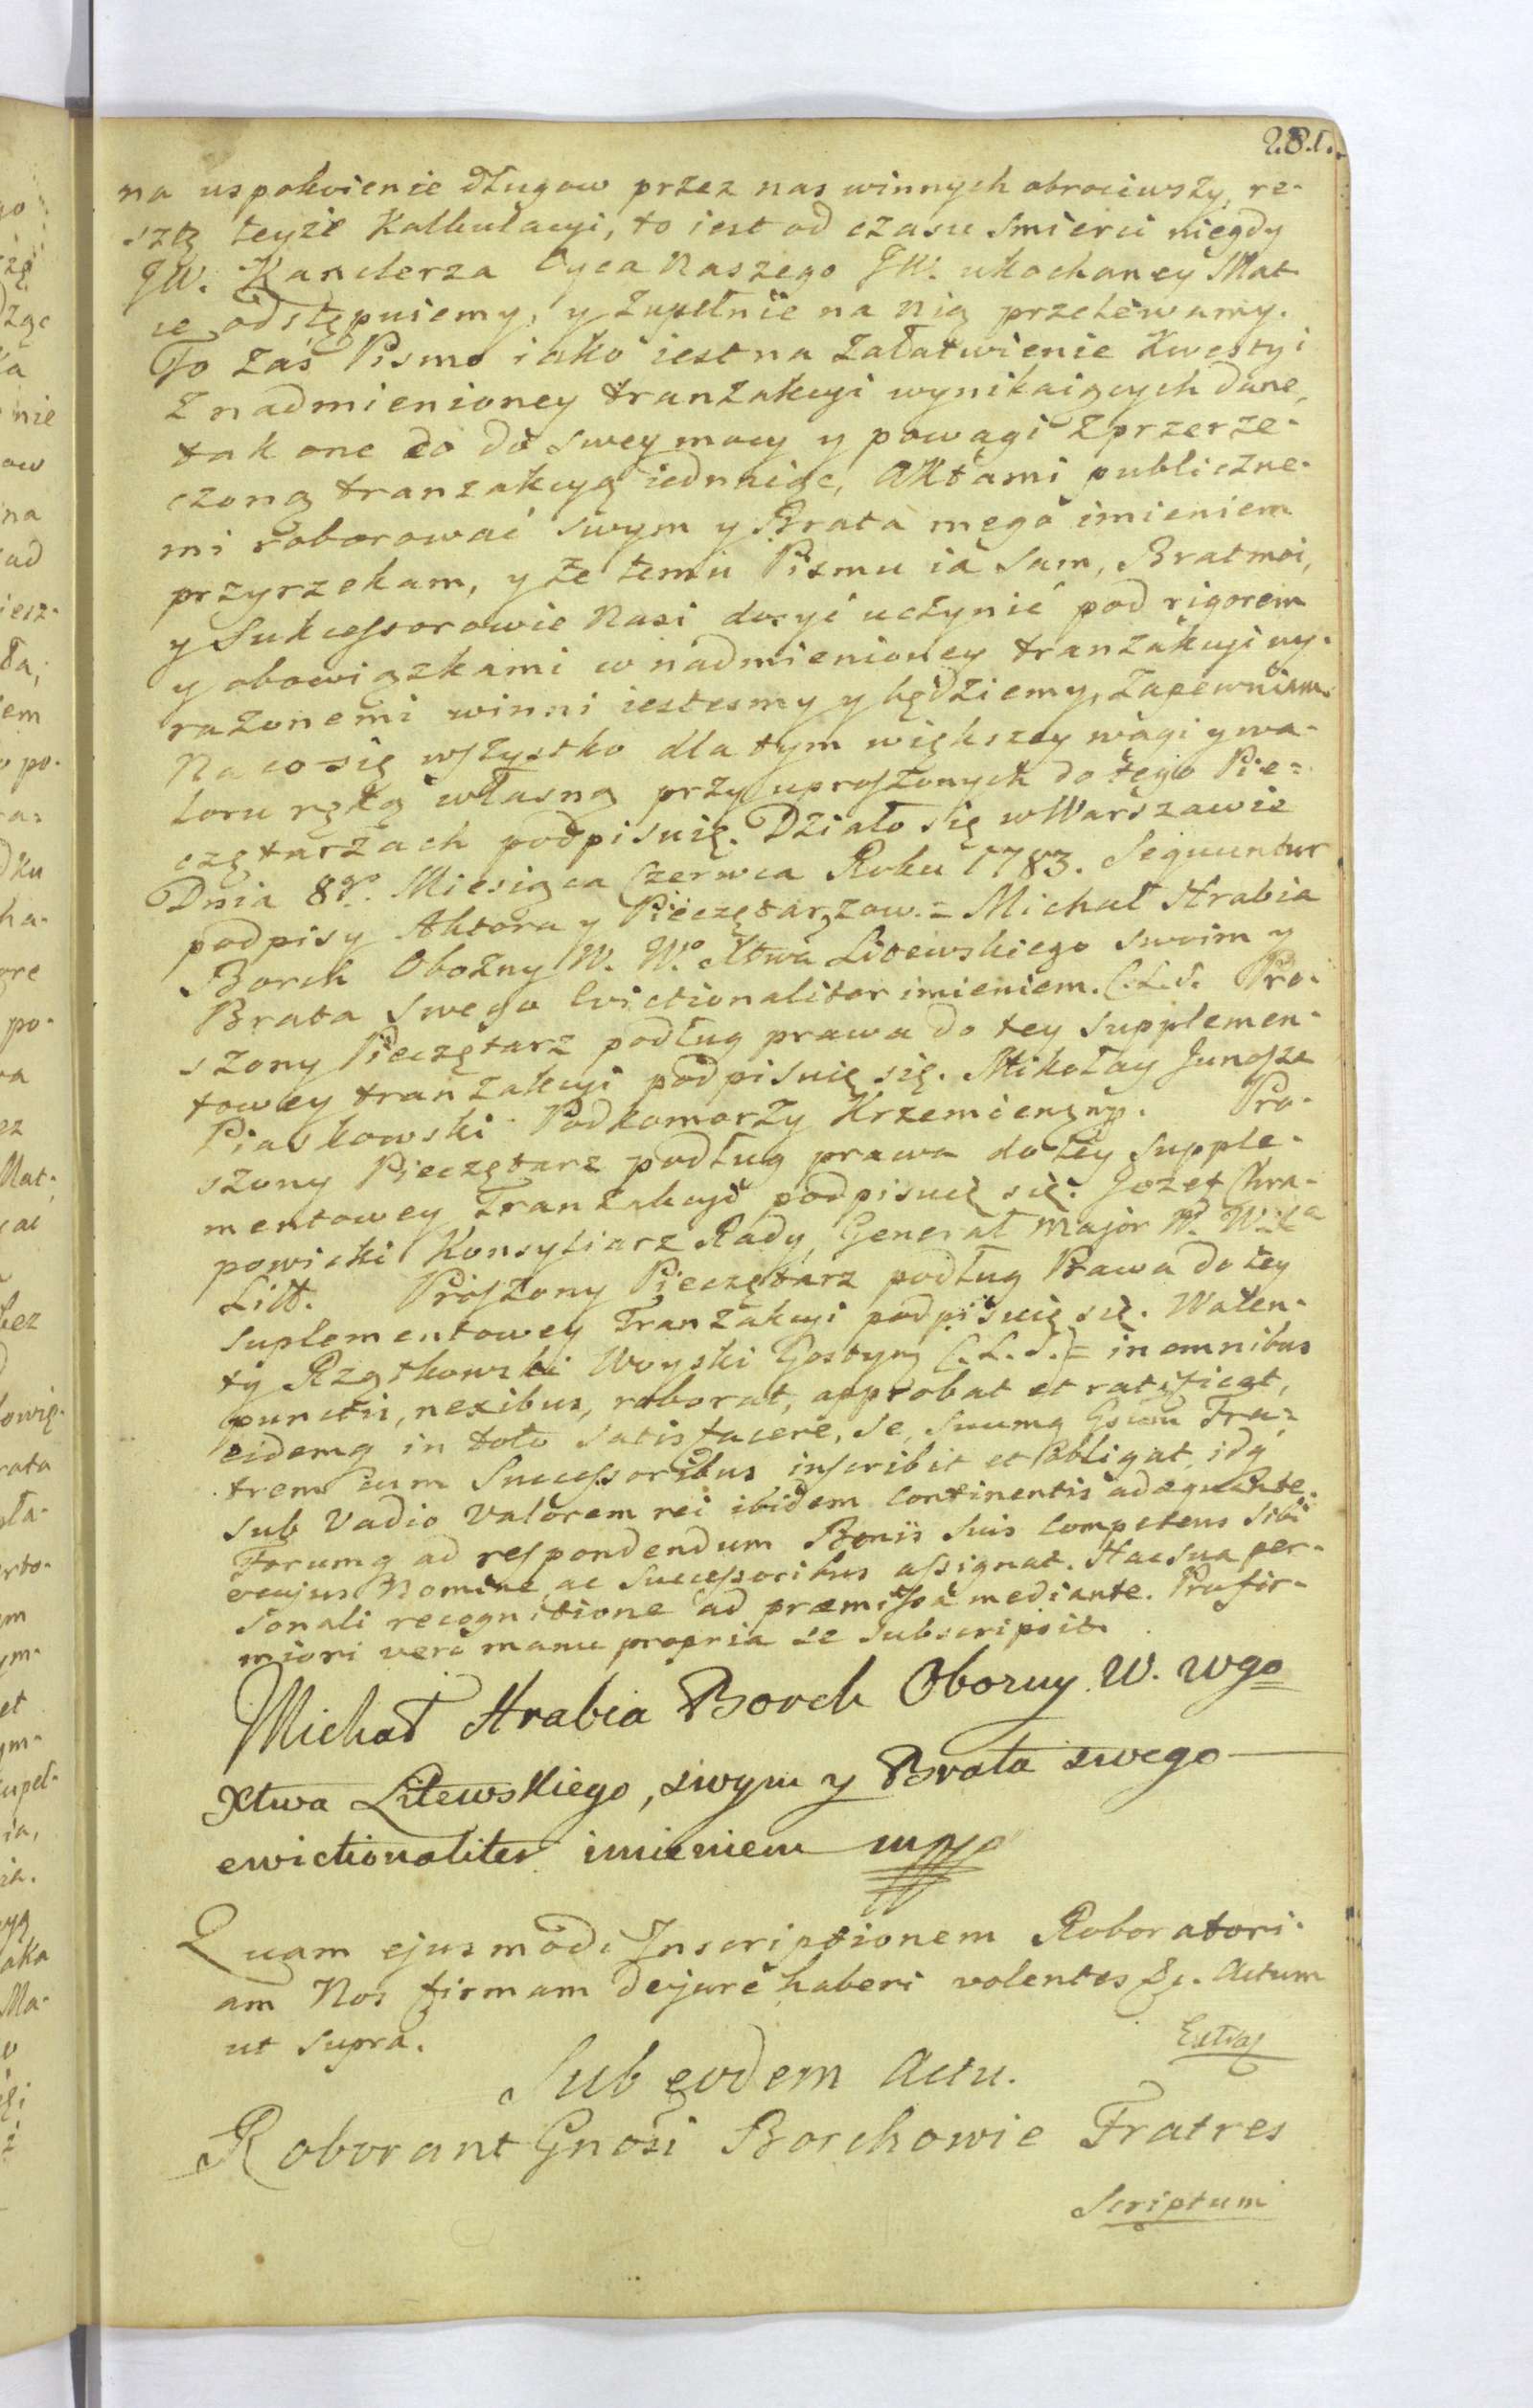 281.
na uspokoienie długow przez nas winnych obrociwszy, re-
sztę teyże Kalkulacyi, to iest od czasu smierci niegdy
JW. Kanclerza Oyca Naszego JW. ukochaney Mat-
ce odstępuiemy, y zupełnie na nią przelewamy.
To zaś Pismo iako iest na załatwienie Kwestyi
z nadmienioney tranzakcyi wynikaiących dane,
tak one co do swey mocy y powagi z przerze-
czoną tranzakcyą iednaiąc, Aktami publiczne-
mi roborować swym y Brata mego imieniem
przyrzekam, y że temu Pismu ia sam, Brat moi,
y Sukcessorowie Nasi dosyć uczynić pod rigorem
y obowiązkami w nadmienioney tranzakcyi wy-
rażonemi winni iestesmy y będziemy, zapewniam.
Na co się wszystko dla tym większey wagi y wa-
loru ręką własną przy uproszonych do tego Pie-
czętarzach podpisuię. Działo się w Warszawie
Dnia 8go. Miesiąca Czerwca Roku 1783. Sequuntur
podpisy Aktora y Pieczętarzow. = Michał Hrabia
Borch Obozny W. Wo. Xtwa Litewskiego swoim y
Brata swego Evictionaliter imieniem. (.L.S. Pro-
szony Pieczętarz podług prawa do tey supplemen-
towey tranzakcyi podpisuię się. Mikołay Junosza
Piaskowski Podkomorzy Krzemieng. Pro-
szony Pieczętarz podług prawa do tey supple-
mentowey Tranzakcyi podpisuię się. Jozef Chra-
powicki Konsyliarz Rady, Generał Major W. W.
Litt. Proszony Pieczętarz podług Prawa do tey
suplementowey Tranzakcyi podpisuię się. Walen-
ty Rzątkowski Woyski Gostyn (.L.S.) = in omnibus
punctis, nexibus, roborat, approbat et ratificat,
eidemq in toto satisfacere, se, suumq Gsum Fra-
trem cum Successoribus inscribit et obligat, idq
sub Vadio Valorem rei ibidem continentis adæquante.
Forumq ad respondendum Bonis suis competens sibi
Nomine ac Successoribus assignat. Hac sua per-
sonali recognitione ad præmissa mediante. Pro fir-
miori vero manu propria se subscripsit.
Michał Hrabia Borch Obozny W. Wgo
Xtwa Litewskiego, swym y Brata swego
ewictionaliter imieniem mpp
Quam ejusmodi Inscriptionem Roboratori-
am Nos firmam dejure haberi volentes &c. Actum
ut supra.
Sub eodem Actu.
Roborant Gnosi Borchowie Fratres
Scriptum